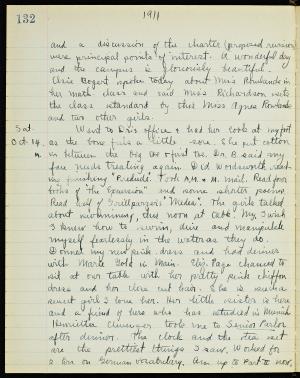 132
1911
and a discussion of the charter (proposed revision)
were principal points of interest. A wonderful day
and the campus is gloriously beautiful.
Elsie Bogert spoke today about Miss Rowlands in
her math class and said Miss Richardson sets
the class standard by this Miss Agnes Rowlands
and two other girls.
Sat. Went to Dr.'s office & had her look at my foot
Oct. 14. as the bone feels a little sore. She put cotton
in between the big toe & first toe. Dr. B said my
face needs treating again. Did Wordsworth, read-
ing & finishing "Prelude". Took A.M. & M. mail. Read four
books of "The Excursion" and some shorter poems.
Read half of Grillparzer's "Medea". The girls talked
about swimming, this noon at table. My, I wish
I knew how to swim, dive and manipulate
myself fearlessly in the water as they do.
Donned my new pink dress and had dinner
with Marie Gold in Main. Eliz. Page chanced to
sit at our table with her pretty pink chiffon
dress and her dear cut hair. She is such a
sweet girl I love her. Her little sister is here
and a friend of hers who has studied in Munich.
took me to Senior Parlor
after dinner. The clock and the tea set
are the prettiest things I saw. Worked for
a on German vocabulary. Am up to now.